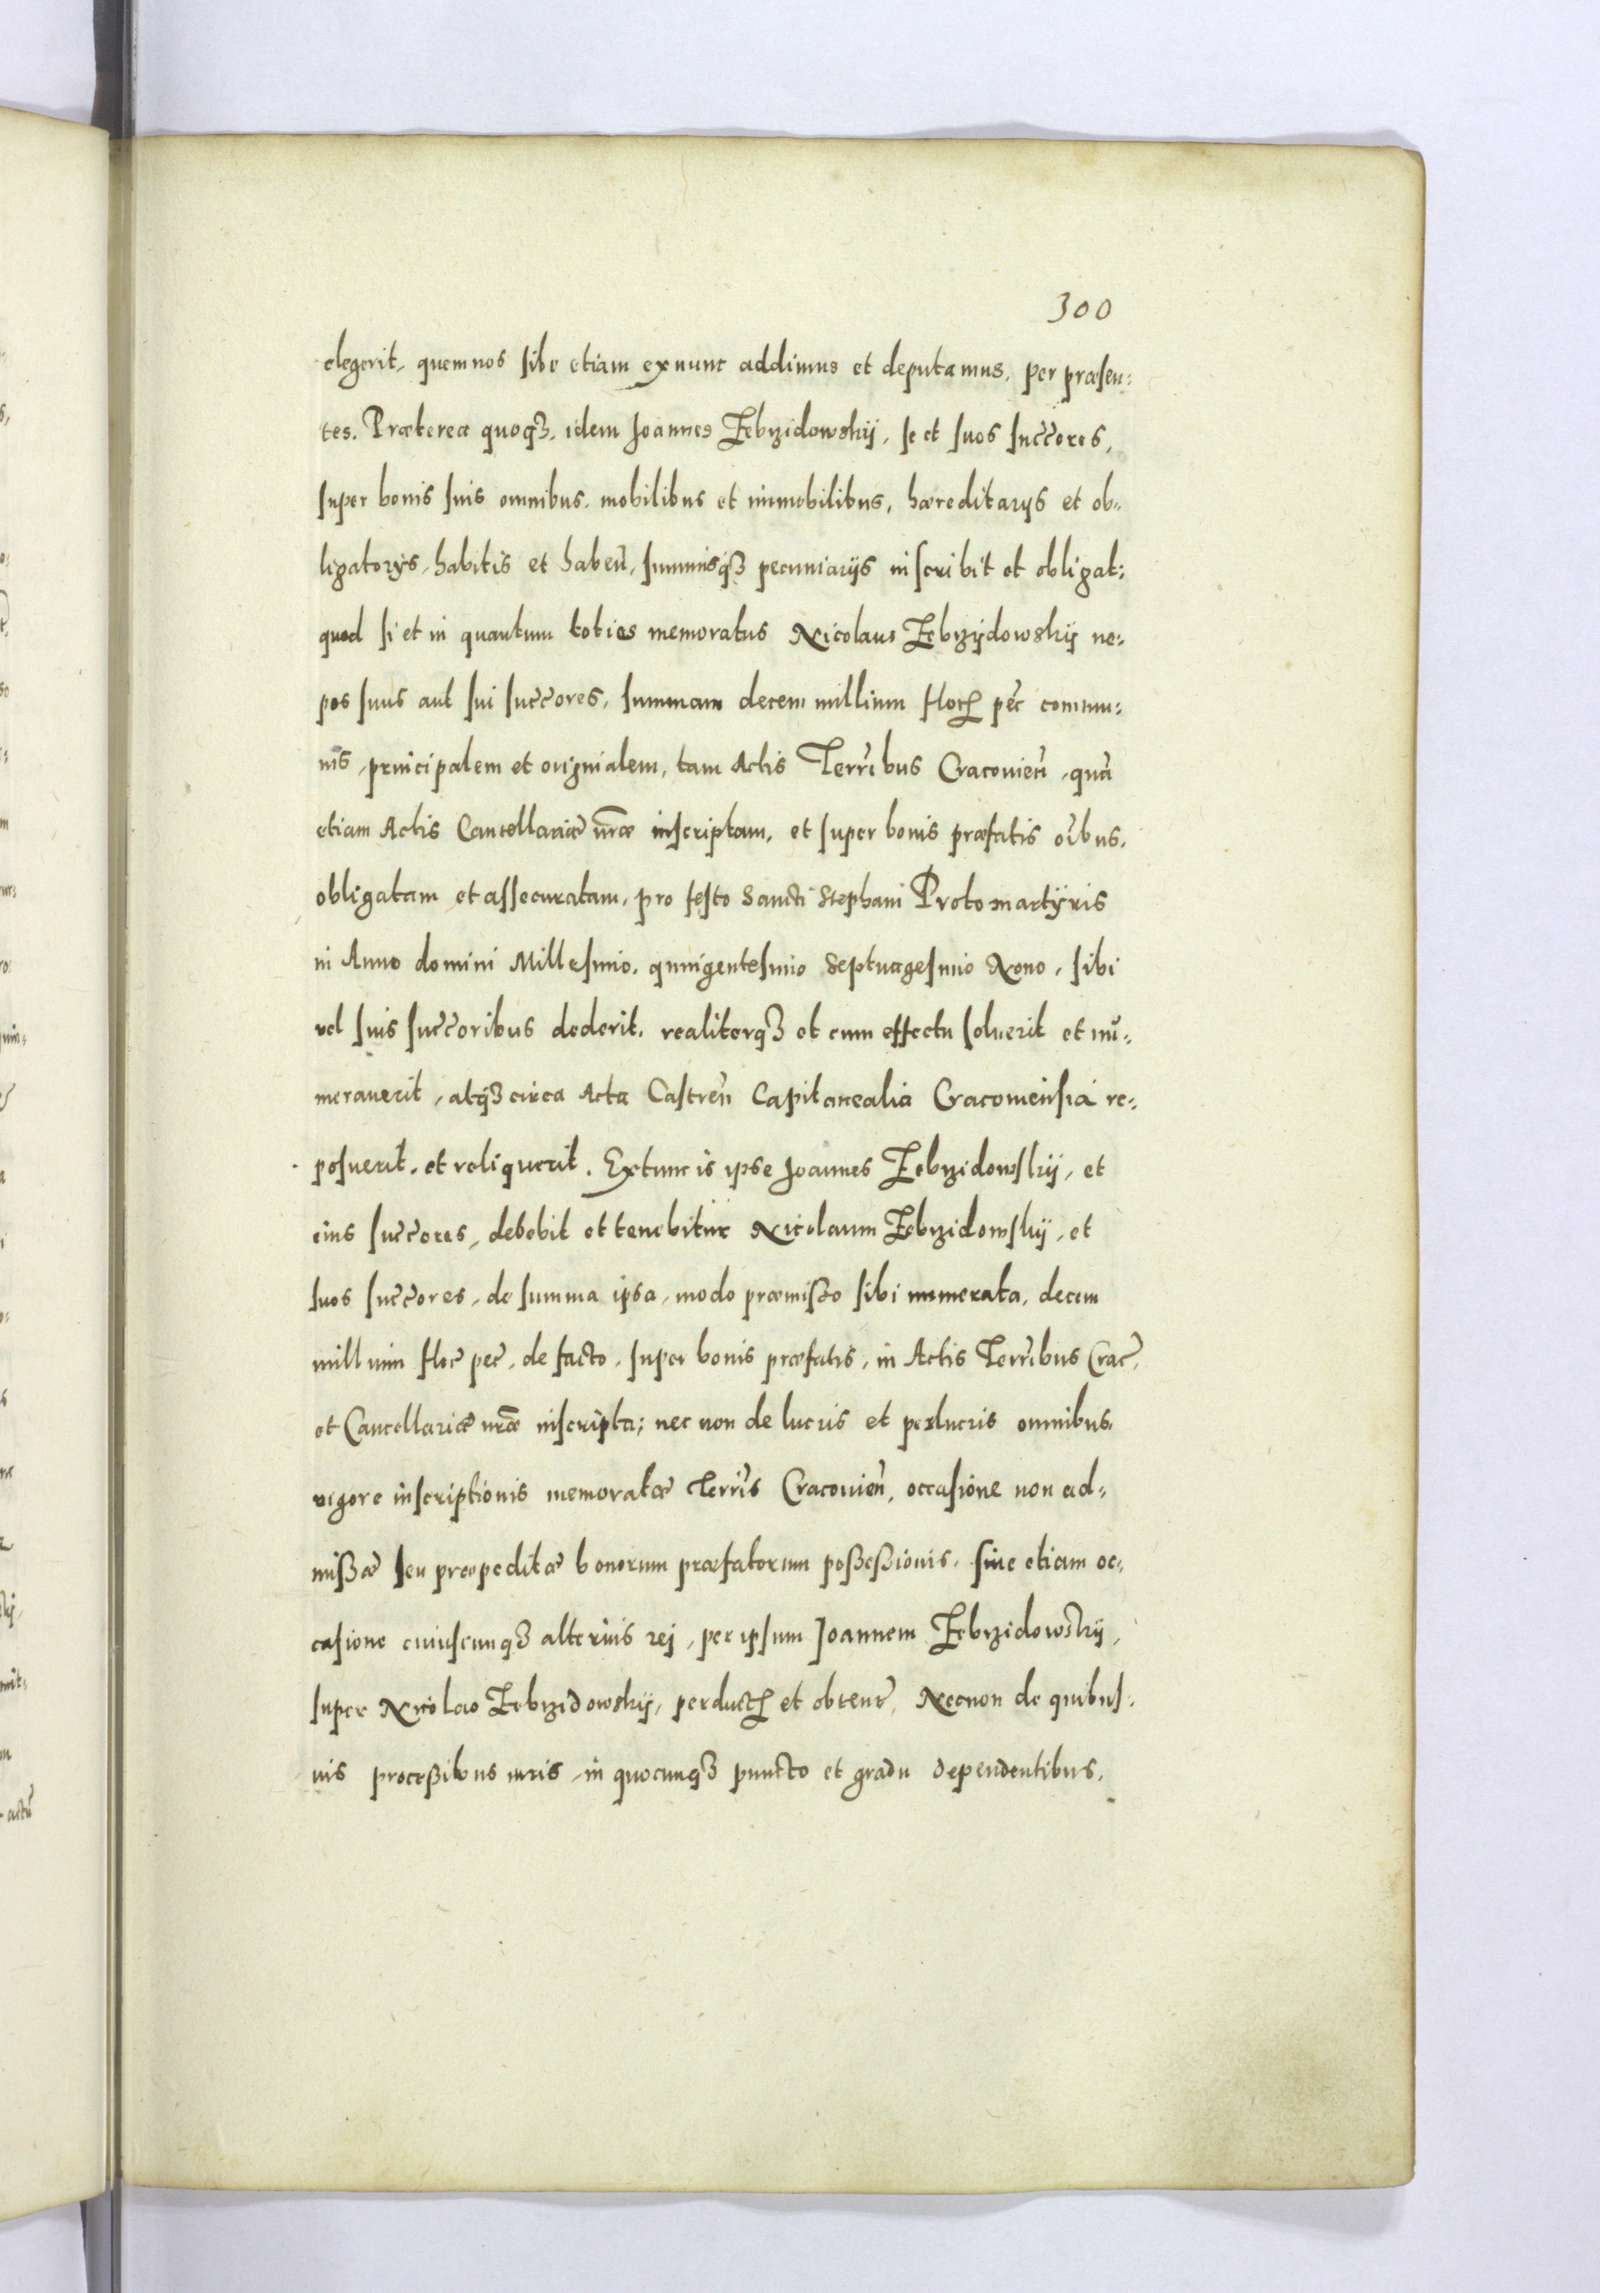 300
elegerit, quem nos sibi etiam ex nunc addimus et deputamus, per præsen:
tes. Præterea quoqȝ, idem Joannes Zebrzidowskÿ, se et suos succōres,
super bonis suis omnibus, mobilibus et immobilibus, hæreditarÿs et ob:
ligatorÿs, habitis et habeñ, summisqȝ pecuniariis inscribit et obligat:
quod si et in quantum toties memoratus Nicolaus Zebrzÿdowskÿ ne:
pos suus aut sui succōres, summam decem millium floꝝ pēc commu:
nis, principalem et originalem, tam Actis Terrībus Cracovieñ, quā
etiam Actis Cancellariæ nr̄æ inscriptam, et super bonis præfatis oībus,
obligatam et assecuratam, pro festo Sancti Stephani Protomartÿris
in Anno domini Millesimo, quingentesimo Septuagesimo Nono, sibi
vel suis succōribus dederit, realiterqȝ et cum effectu solverit et nū:
meraverit, atqȝ circa Acta Castreñ Capitanealia Cracoviensia re:
posuerit, et reliquerit. Extunc is ipse Joannes Zebrzidowskÿ, et
eius succōres, debebit et tenebitur Nicolaum Zebrzidowskÿ, et
suos succōres, de summa ipsa, modo præmisso sibi numerata, decem
millium flōr pēc, de facto, super bonis præfatis, in Actis Terrībus Crac̄,
et Cancellariæ nr̄æ inscripta; nec non de lucris et perlucris omnibus,
vigore inscriptionis memoratæ Terrīs Cracovień, occasione non ad:
missæ seu præpeditæ bonorum præfatorum possessionis, sive etiam oc:
casione cuiuscunqȝ alterius rei, per ipsum Joannem Zebrzidowskÿ,
super Nicolao Zebrzidowskÿ, perductꝝ et obtent̄, Necnon de quibus:
vis processibus iuris, in quocunqȝ puncto et gradu dependentibus,